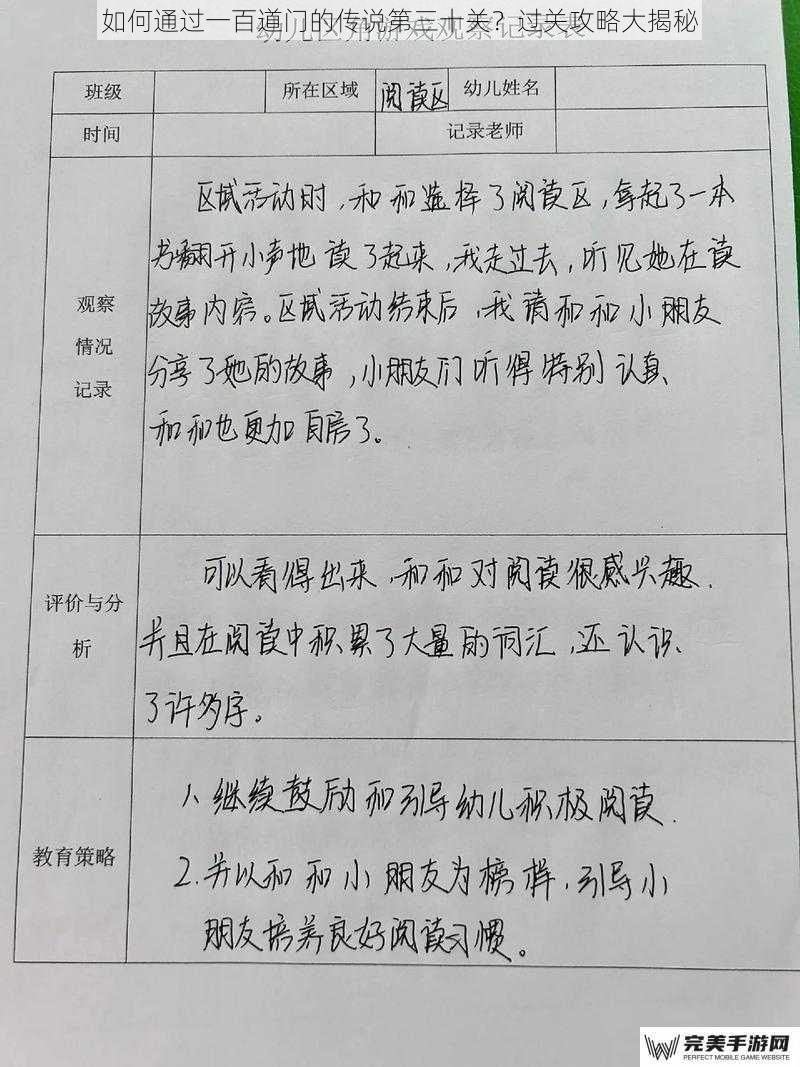 如何通过一百道门的传说第三十关？过关攻略大揭秘
幼儿区角游戏观察记录表
班级 所在区域 阅读区 幼儿姓名
时间 记录老师
观察情况记录
区域活动时，和和选择了阅读区，拿起了一本
书翻开小声地读了起来，我走过去，听见她在读
故事内容。区域活动结束后，我请和和小朋友
分享了她的故事，小朋友们听得特别认真、
和和也更加自信了。
评价与分析
可以看得出来，和和对阅读很感兴趣.
并且在阅读中积累了大量的词汇，还认识、
了许多字。
教育策略
1、继续鼓励和引导幼儿积极阅读.
2.并以和和小朋友为榜样，引导小
朋友培养良好阅读习惯。
完美手游网
PERFECT MOBILE GAME WEBSITE